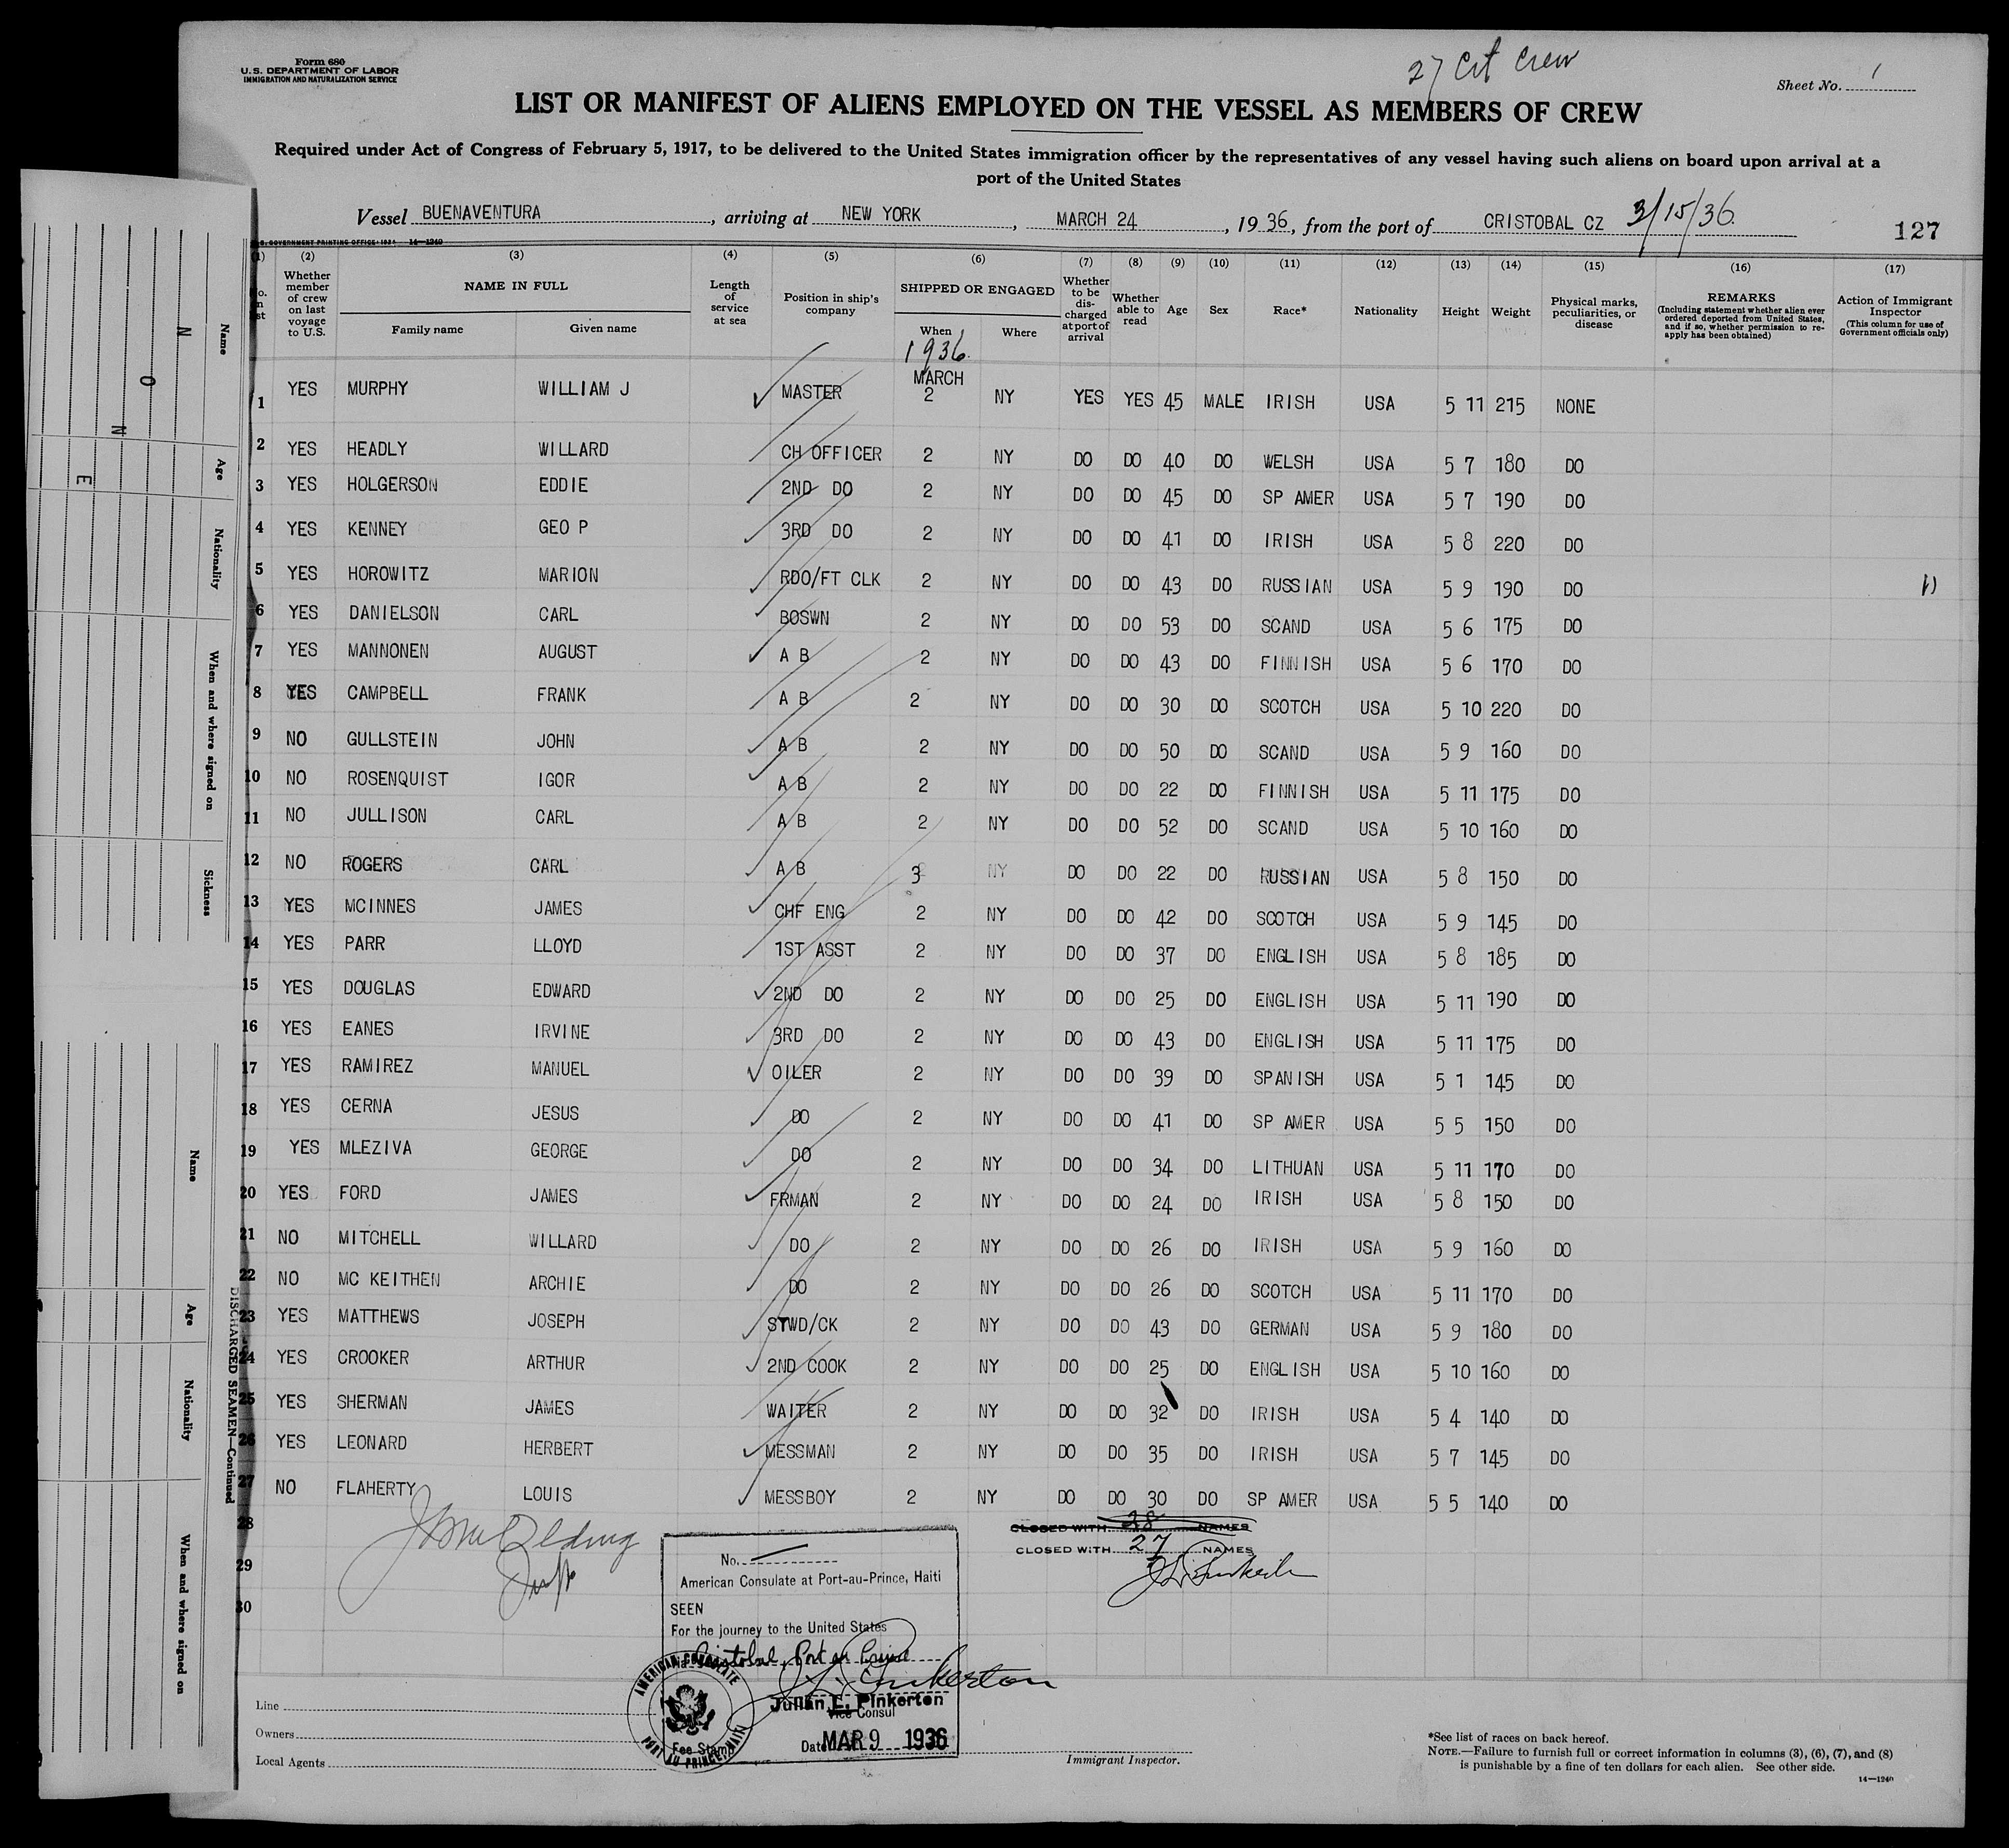 27 Cit Crew
Form 680
U.S. DEPARTMENT OF LABOR
IMMIGRATION AND NATURALIZATION SERVICE
Sheet No. 1
LIST OR MANIFEST OF ALIENS EMPLOYED ON THE VESSEL AS MEMBERS OF CREW
Required under Act of Congress of February 5, 1917, to be delivered to the United States immigration officer by the representatives of any vessel having such aliens on board upon arrival at a
port of the United States
Vessel BUENAVENTURA, arriving at NEW YORK, MARCH 24, 1936, from the port of CRISTOBAL CZ 3/15/36.
127
U.S. GOVERNMENT PRINTING OFFICE: 1934 14—1240
(1) (2) (3) (4) (5) (6) (7) (8) (9) (10) (11) (12) (13) (14) (15) (16) (17)
No. on list
Whether member of crew on last voyage to U.S.
NAME IN FULL
Family name
Given name
Length of service at sea
Position in ship's company
SHIPPED OR ENGAGED
When
Where
Whether to be discharged at port of arrival
Whether able to read
Age
Sex
Race*
Nationality
Height
Weight
Physical marks, peculiarities, or disease
REMARKS
(Including statement whether alien ever ordered deported from United States, and if so, whether permission to re-apply has been obtained)
Action of Immigrant Inspector
(This column for use of Government officials only)
1936.
MARCH
1 YES MURPHY WILLIAM J MASTER 2 NY YES YES 45 MALE IRISH USA 5 11 215 NONE
2 YES HEADLY WILLARD CH OFFICER 2 NY DO DO 40 DO WELSH USA 5 7 180 DO
3 YES HOLGERSON EDDIE 2ND DO 2 NY DO DO 45 DO SP AMER USA 5 7 190 DO
4 YES KENNEY GEO P 3RD DO 2 NY DO DO 41 DO IRISH USA 5 8 220 DO
5 YES HOROWITZ MARION RDO/FT CLK 2 NY DO DO 43 DO RUSSIAN USA 5 9 190 DO
6 YES DANIELSON CARL BOSWN 2 NY DO DO 53 DO SCAND USA 5 6 175 DO
7 YES MANNONEN AUGUST A B 2 NY DO DO 43 DO FINNISH USA 5 6 170 DO
8 YES CAMPBELL FRANK A B 2 NY DO DO 30 DO SCOTCH USA 5 10 220 DO
9 NO GULLSTEIN JOHN A B 2 NY DO DO 50 DO SCAND USA 5 9 160 DO
10 NO ROSENQUIST IGOR A B 2 NY DO DO 22 DO FINNISH USA 5 11 175 DO
11 NO JULLISON CARL A B 2 NY DO DO 52 DO SCAND USA 5 10 160 DO
12 NO ROGERS CARL A B 3 NY DO DO 22 DO RUSSIAN USA 5 8 150 DO
13 YES MCINNES JAMES CHF ENG 2 NY DO DO 42 DO SCOTCH USA 5 9 145 DO
14 YES PARR LLOYD 1ST ASST 2 NY DO DO 37 DO ENGLISH USA 5 8 185 DO
15 YES DOUGLAS EDWARD 2ND DO 2 NY DO DO 25 DO ENGLISH USA 5 11 190 DO
16 YES EANES IRVINE 3RD DO 2 NY DO DO 43 DO ENGLISH USA 5 11 175 DO
17 YES RAMIREZ MANUEL OILER 2 NY DO DO 39 DO SPANISH USA 5 1 145 DO
18 YES CERNA JESUS DO 2 NY DO DO 41 DO SP AMER USA 5 5 150 DO
19 YES MLEZIVA GEORGE DO 2 NY DO DO 34 DO LITHUAN USA 5 11 170 DO
20 YES FORD JAMES FRMAN 2 NY DO DO 24 DO IRISH USA 5 8 150 DO
21 NO MITCHELL WILLARD DO 2 NY DO DO 26 DO IRISH USA 5 9 160 DO
22 NO MC KEITHEN ARCHIE DO 2 NY DO DO 26 DO SCOTCH USA 5 11 170 DO
23 YES MATTHEWS JOSEPH STWD/CK 2 NY DO DO 43 DO GERMAN USA 5 9 180 DO
24 YES CROOKER ARTHUR 2ND COOK 2 NY DO DO 25 DO ENGLISH USA 5 10 160 DO
25 YES SHERMAN JAMES WAITER 2 NY DO DO 32 DO IRISH USA 5 4 140 DO
26 YES LEONARD HERBERT MESSMAN 2 NY DO DO 35 DO IRISH USA 5 7 145 DO
27 NO FLAHERTY LOUIS MESSBOY 2 NY DO DO 30 DO SP AMER USA 5 5 140 DO
28
29
30
CLOSED WITH 28 NAMES
CLOSED WITH 27 NAMES
No.
American Consulate at Port-au-Prince, Haiti
SEEN
For the journey to the United States
Via Cristobal, Port au Prince
Julian L. Pinkerton
Vice Consul
Date MAR 9 1936
Fee Stamp
AMERICAN CONSULATE
PORT AU PRINCE, HAITI
Line
Owners
Local Agents
Immigrant Inspector.
*See list of races on back hereof.
NOTE.—Failure to furnish full or correct information in columns (3), (6), (7), and (8)
is punishable by a fine of ten dollars for each alien. See other side.
14—1240
Name
Age
Nationality
When and where signed on
Sickness
N O N E
DISCHARGED SEAMEN—Continued
Name
Age
Nationality
When and where signed on